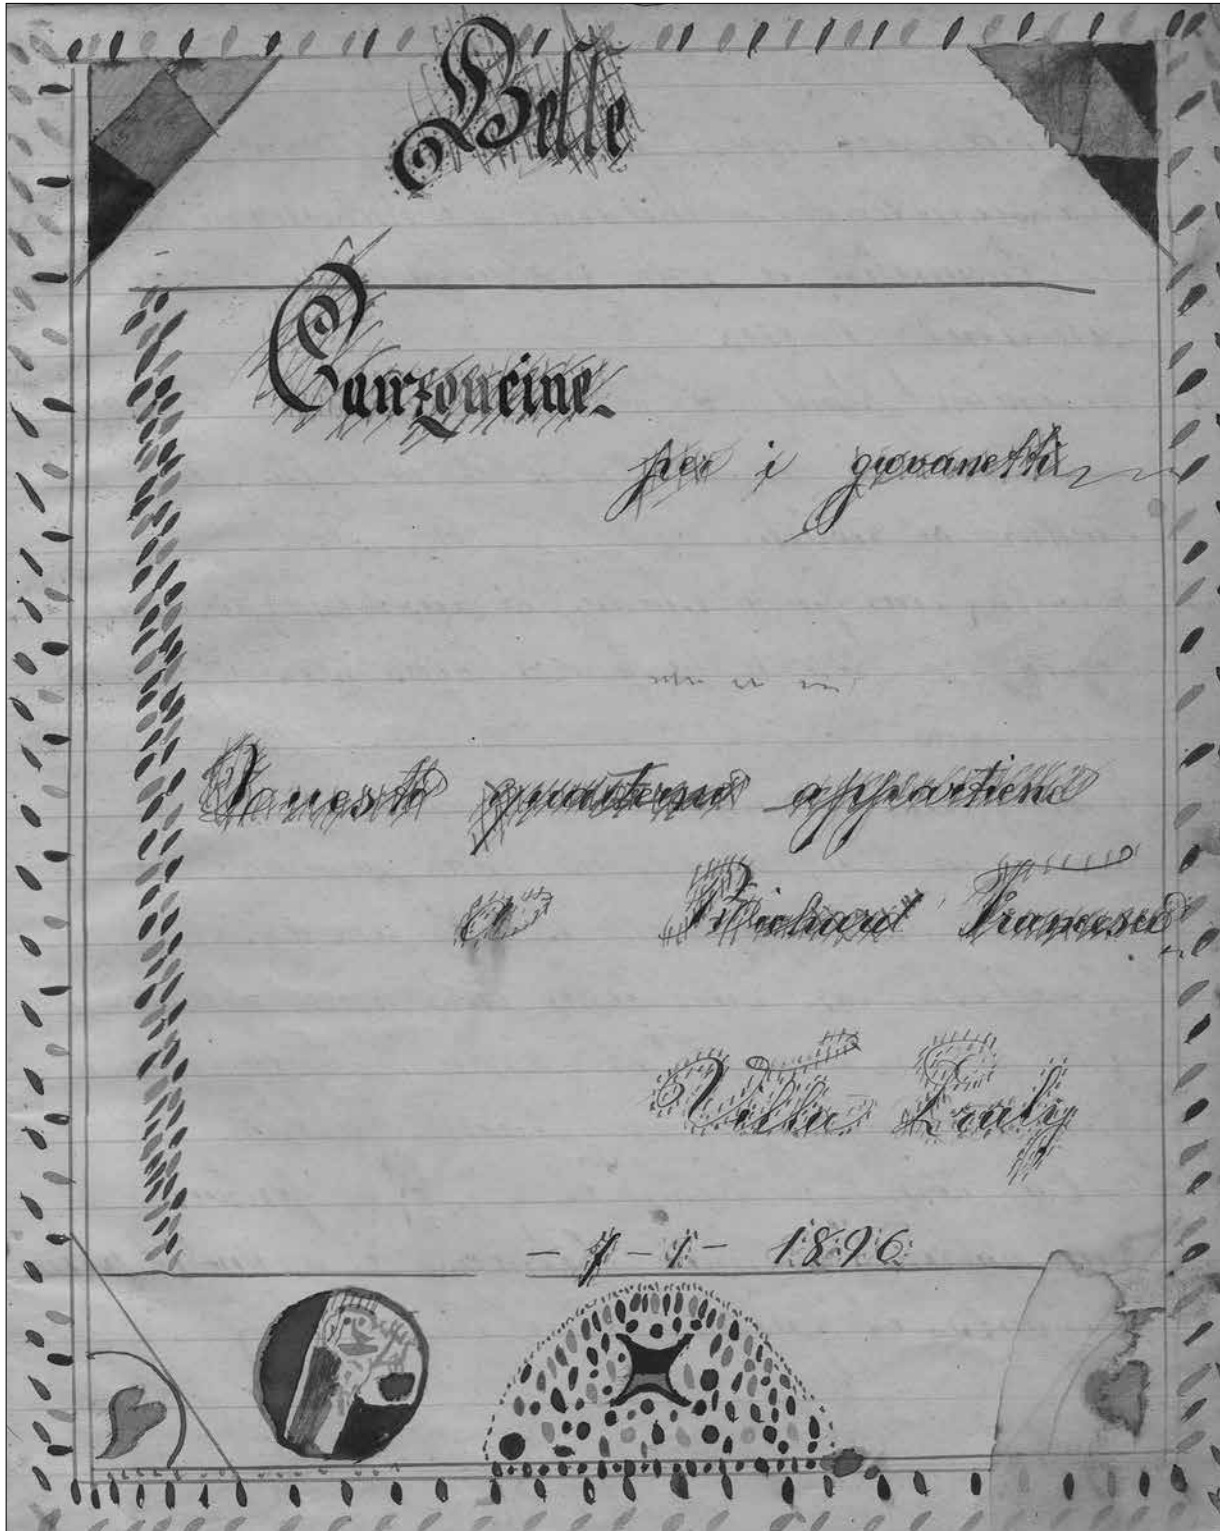 Belle
Canzoncine
per i giovanetti
Questo quaderno appartiene
a Richard Francesco
Villa
- 1 - 1 - 1896